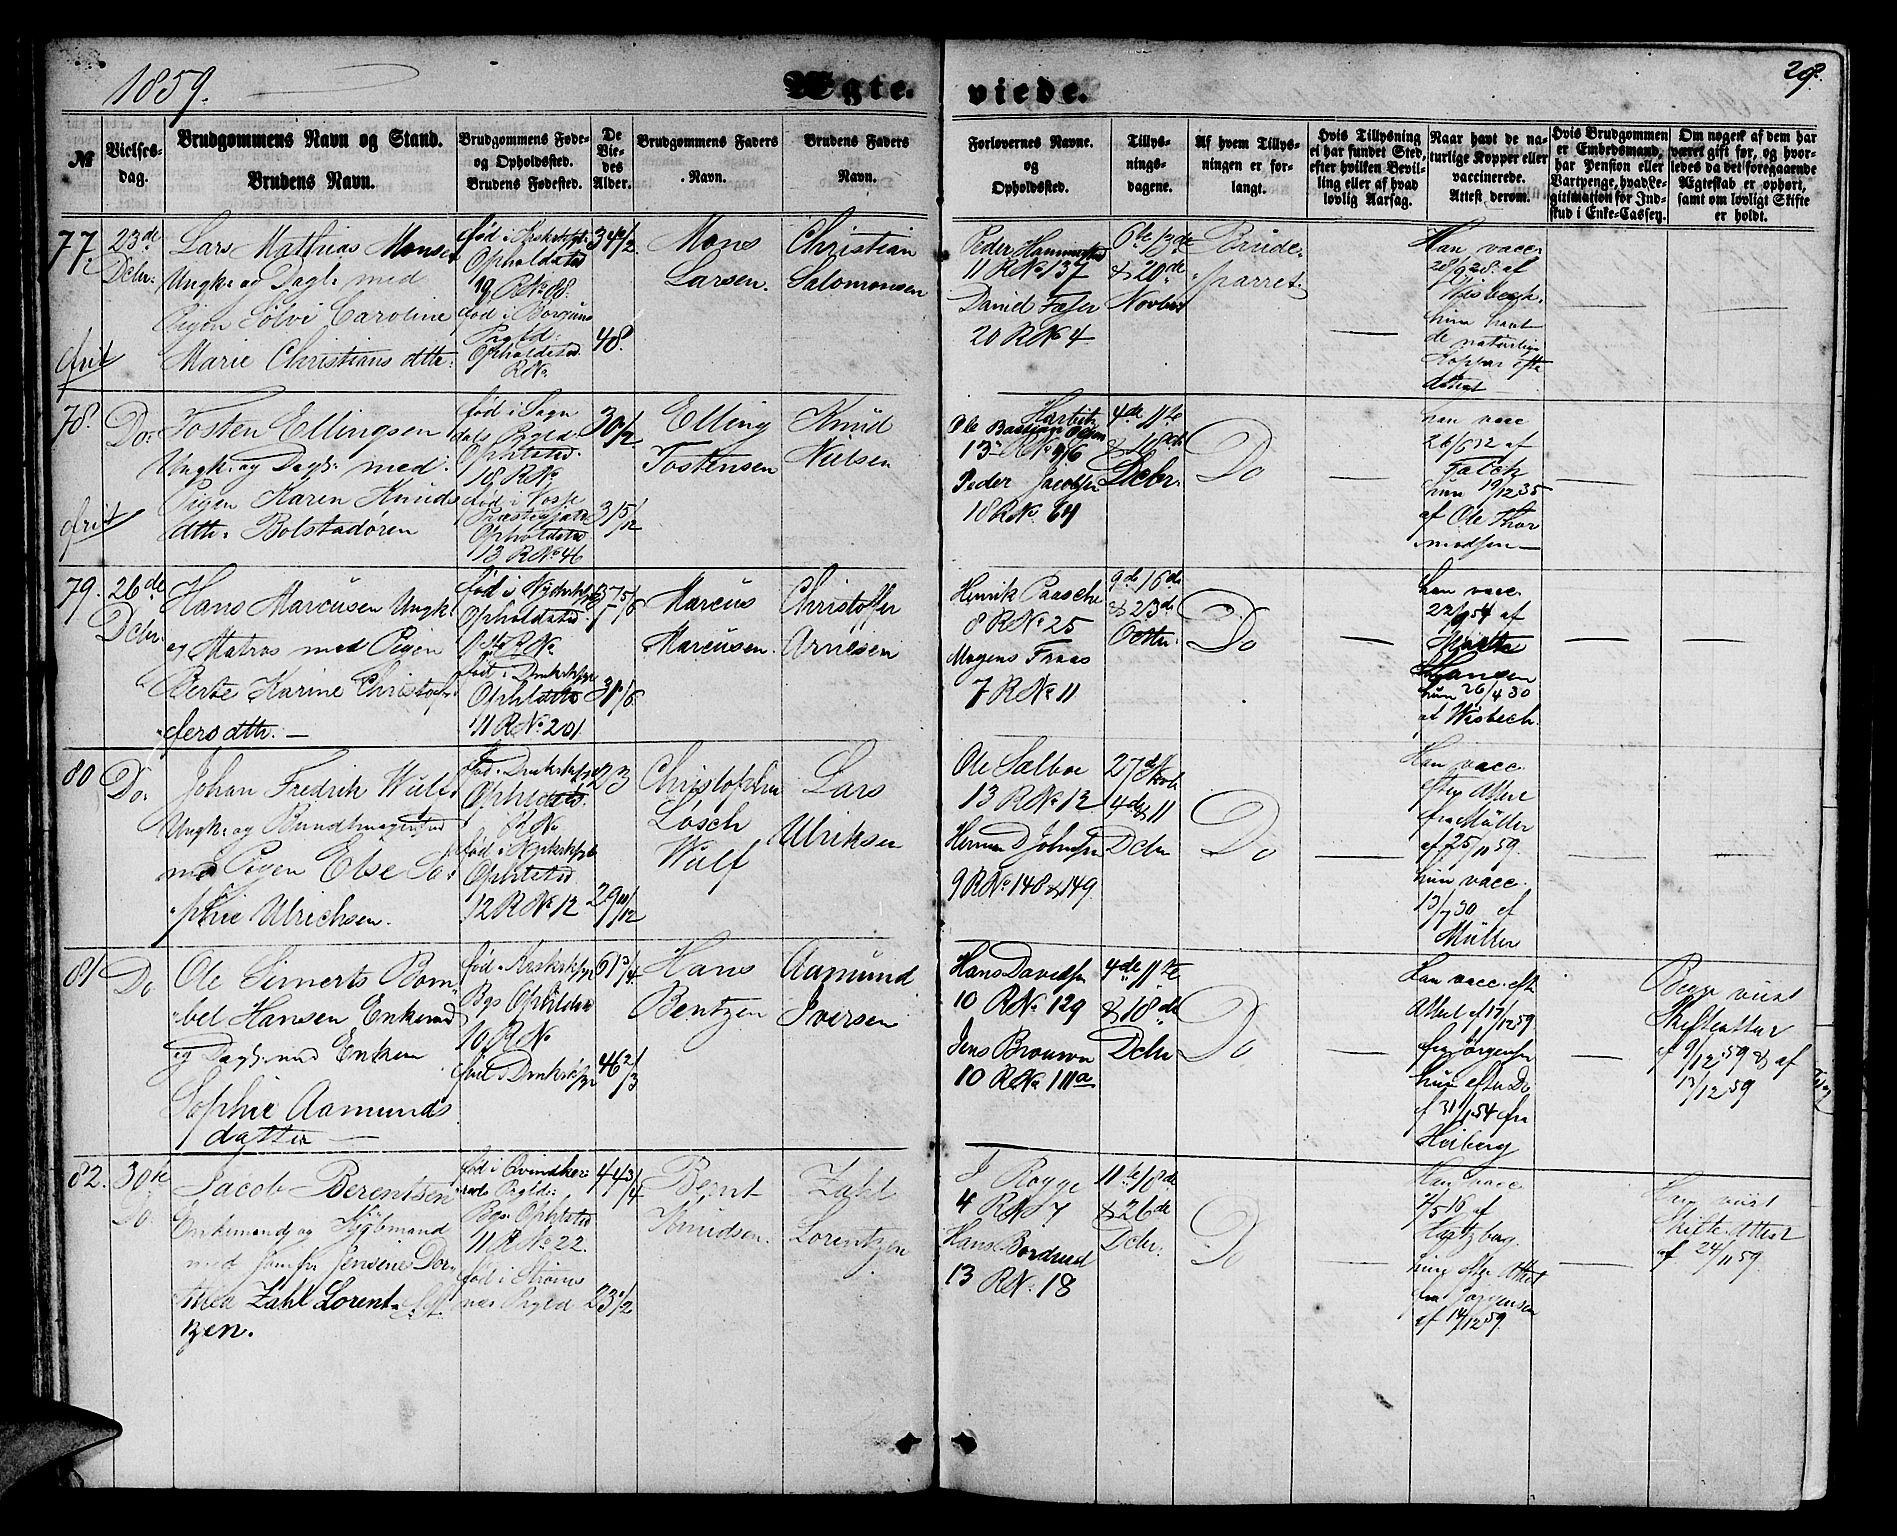 1859.
Ægte-
viede.
29.
№
Vielses-
dag.
Brudgommens Navn og Stand.
Brudens Navn.
Brudgommens Føde-
og Opholdssted.
Brudens Fødested.
De
Vie-
des
Alder.
Brudgommens Faders
Navn.
Brudens Faders
Navn.
Forlovernes Navne.
og
Opholdssted.
Tillys-
nings-
dagene.
Af hvem Tillys-
ningen er for-
langt.
Hvis Tillysning
ei har fundet Sted,
efter hvilken Bevil-
ling eller af hvad
lovlig Aarsag.
Naar havt de na-
turlige Kopper eller
vaccinerede.
Attest derom.
Hvis Brudgommen
er Embedsmand,
har Pension eller
Vartpenge, hvad Le-
gitimation for Ind-
skud i Enke-Cassen.
Om nogen af dem har
været gift før, og hvor-
ledes da det foregaaende
Ægteskab er ophørt,
samt om lovligt Skifte
er holdt.
77.
23de
Dcbr.
frit
Lars Mathias Monsen
Ungk. og Dagl. med
Pigen Sølvi Caroline
Marie Christians dtr.
Opholdssted
19 R№ 88.
Opholdssted
R№
34 1/2
48.
Mons
Larsen.
Christian
Salomonsen
Peder Hammersted
11 R№ 137
David
20 R№ 4
6te 13de
& 20de
Novbr
Brude-
parret.
Han vacc.
28/9 28. af
Wisbech.
hun havt
de naturlige
Kopper efter
Attest
78.
Do.
frit
Tosten Ellingsen
Ungk. og Dagl. med
Pigen Karen Knuds
dtr. Bolstadøren
født i Sogn
dals Prgld.
Ophldsted
18 R№
fød i Voss
Præstegjeld
Opholdsted
13 R№ 46
30 1/2
31 5/12
Elling
Tostensen
Knud
Nielsen
Ole Bastian Olsen
13 R№ 96
Peder Jacobsen
18 R№ 64
4de 11te
& 18de
Dcbr.
Do
han vacc
26/6 32 af
hun 19/12 35
af Ole Thor
modsen
79.
26de
Dcbr.
Hans Marcusen Ungk.
og Matros med Pigen
Berte Karine Christof-
fersdtr.
Opholdsted
R№
Ophldsted
11 R№ 201
31 1/6
Marcus
Marcusen.
Christoffer
Arnesen
Henrik Paasche
8 R№ 25
Mogens Fraas
7 R№ 11
9de 16de
& 23de
Octbr.
Do
han vacc.
22/9 54 af
hun 26/4 30
af Wisbech.
80
Do.
Johan Fredrik Wulf
Ungk. og Bundtmagersvd
med Pigen Else So-
phie Ulrichsen.
Ophldsted.
R№
Ophldsted
12 R№ 12
23
29 11/12
Christopher
Losch
Wulf
Lars
Ulriksen
Ole Salboe
13 R№ 12
Herman D Johnsen
9 R№ 148 & 149.
27de Novb
4de & 11
Dcbr
Do
Han vacc.
efter Attest
fra Müller
af 25/11 59.
hun vacc.
13/7 30 af
Müller
81
Do
Ole Siverts Bom-
bel Hansen Enkemd
og Dagl. med Enken
Sophie Aamunds
datter
10 R№
61 3/4
46 2/3
Hans
Bentzen
Aamund
Iversen
Hans Davidsen
10 R№ 129
Jens Brouwn
10 R№ 111a
4de 11te
& 18de
Dcbr
Do
Han vacc. eftr
Attest af 17/12 59
fra Jørgensen
hun efter Do
af 31/1 54 fra
Heiberg
Begge viist
Skifteattester
af 9/12 59 & af
13/12 59
82.
30te
Do.
Jacob Berentsen
Enkemand og Kjøbmand
med Jomfru Jensine Dor-
thea Zahl Lorent-
zen.
fød i Qvindher-
reds Prgld.
Bgs. Ophldsted
11 R№ 22.
fød i Strøms
næs Prgld
44 3/4
23 1/2
Bernt
Knudsen.
Zahl
Lorentzen
J Rogge
4 R№ 7
Hans Bordrud
13 R№ 18
11te 18de
& 26de
Dcbr.
Do
Han vacc
7/5 16 af
Hertzberg.
hun efter Attest
fra Jørgensen
af 14/12 59.
Han viist
Skifte Attest
af 24/11 59.